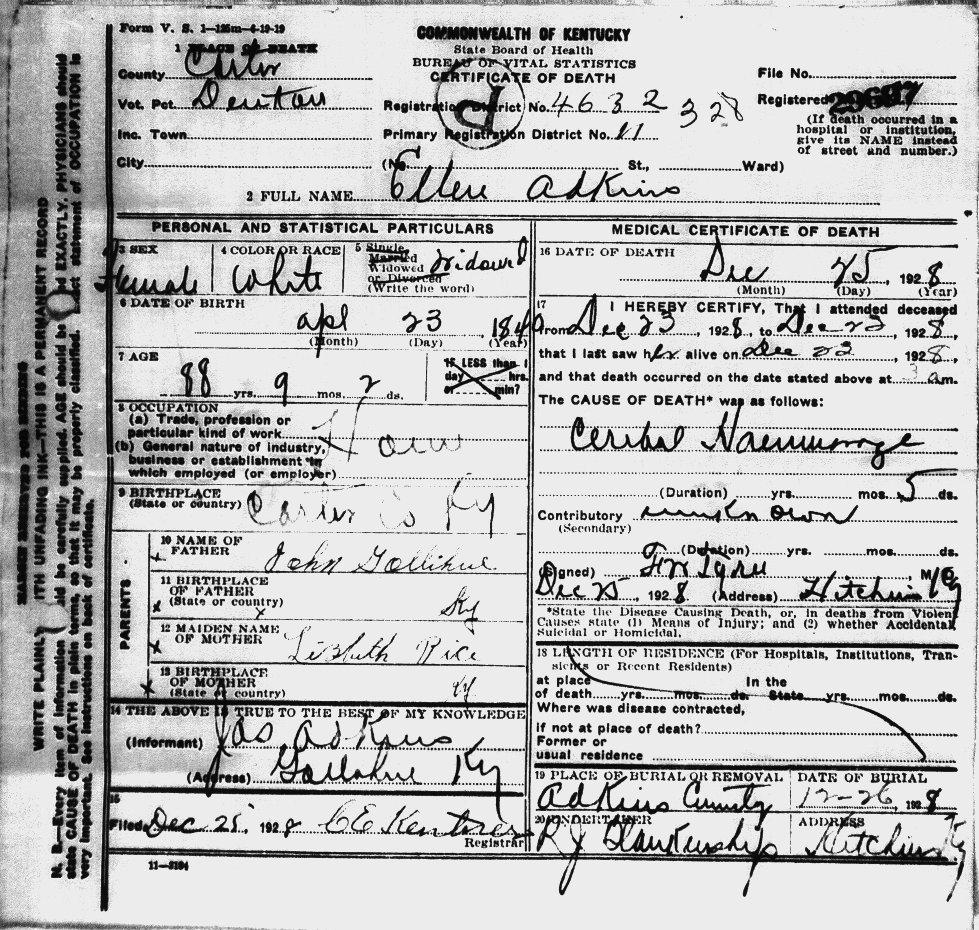 Form V. S. 1—125m—4-19-19
COMMONWEALTH OF KENTUCKY
State Board of Health
BUREAU OF VITAL STATISTICS
CERTIFICATE OF DEATH
1 PLACE OF DEATH
County Carter
Vot. Pct. Denton
Inc. Town
City
Registration District No. 4632
328
Primary Registration District No. 11
(No. St., Ward)
File No.
Registered
(If death occurred in a
hospital or institution,
give its NAME instead
of street and number.)
2 FULL NAME Ellen Adkins
PERSONAL AND STATISTICAL PARTICULARS
3 SEX
Female
4 COLOR OR RACE
White
5 Single
Married
Widowed
or Divorced
(Write the word)
Widowed
6 DATE OF BIRTH
Apl 23, 1840
(Month) (Day) (Year)
7 AGE
88 yrs. 9 mos. 2 ds.
If LESS than 1
day hrs.
or min?
8 OCCUPATION
(a) Trade, profession or
particular kind of work
(b) General nature of industry,
business or establishment in
which employed (or employer)
9 BIRTHPLACE
(State or country) Carter Co Ky
PARENTS
10 NAME OF
FATHER John Gollihue
11 BIRTHPLACE
OF FATHER
(State or country) Ky
12 MAIDEN NAME
OF MOTHER Lizbuth Rice
13 BIRTHPLACE
OF MOTHER
(State or country) Ky
14 THE ABOVE IS TRUE TO THE BEST OF MY KNOWLEDGE
(Informant) Jas Adkins
(Address) Gollahue Ky
15
Filed Dec 25, 1928
Registrar
11—3184
MEDICAL CERTIFICATE OF DEATH
16 DATE OF DEATH
Dec 25, 1928
(Month) (Day) (Year)
17 I HEREBY CERTIFY, That I attended deceased
from Dec 23, 1928, to Dec 23, 1928,
that I last saw her alive on Dec 23, 1928,
and that death occurred on the date stated above at 3 am.
The CAUSE OF DEATH* was as follows:
Ceribal Haemmorage
(Duration) yrs. mos. 5 ds.
Contributory unknown
(Secondary)
(Duration) yrs. mos. ds.
(Signed) , M. D.
Dec 25, 1928 (Address) Hitchins Ky
*State the Disease Causing Death, or, in deaths from Violent
Causes state (1) Means of Injury; and (2) whether Accidental,
Suicidal or Homicidal.
18 LENGTH OF RESIDENCE (For Hospitals, Institutions, Tran-
sients or Recent Residents)
at place In the
of death yrs. mos. ds. State yrs. mos. ds.
Where was disease contracted,
if not at place of death?
Former or
usual residence
19 PLACE OF BURIAL OR REMOVAL
Adkins
DATE OF BURIAL
12-26, 1928
20 UNDERTAKER
R J Blankinship
ADDRESS
Hitchins Ky
MARGIN RESERVED FOR BINDING
WRITE PLAINLY WITH UNFADING INK—THIS IS A PERMANENT RECORD
N. B.—Every item of information should be carefully supplied. AGE should be stated EXACTLY. PHYSICIANS should
state CAUSE OF DEATH in plain terms, so that it may be properly classified. Exact statement of OCCUPATION is
very important. See instructions on back of certificate.